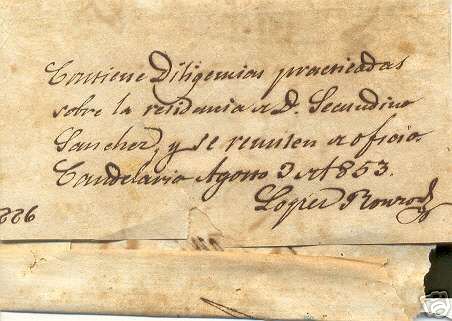 Contiene Diligencias practicadas
sobre la residencia a D. Secundino
Sanchez, y se remiten a oficio.
Candelaria Agosto 2 de 1853.
Lopez